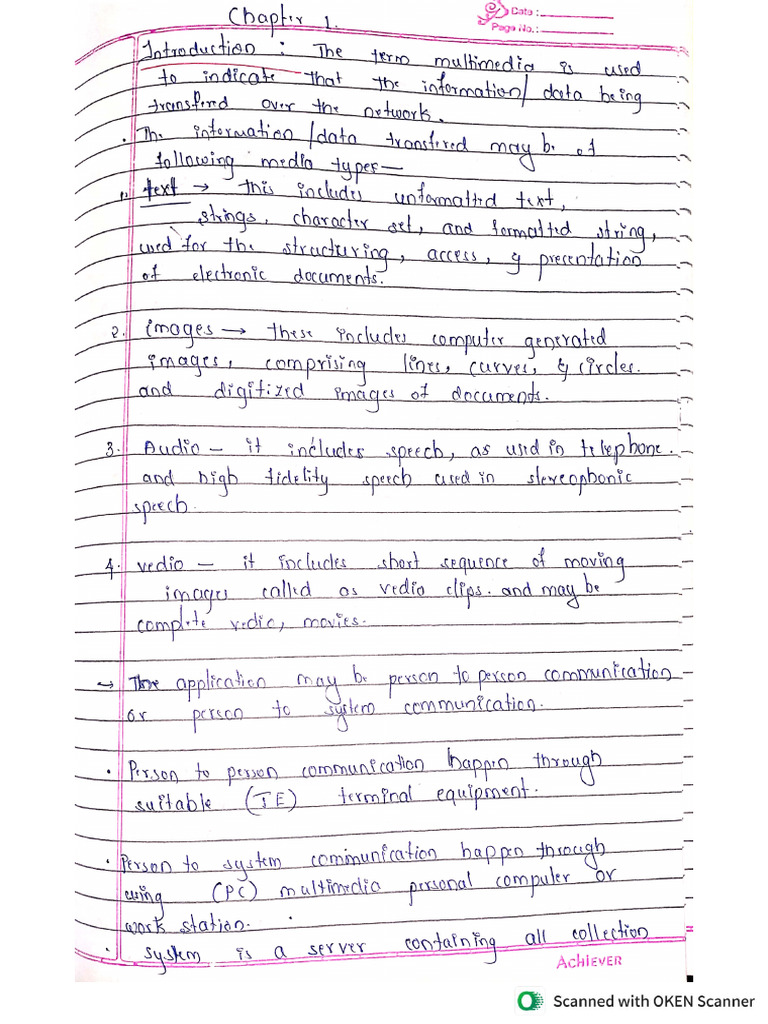 Chapter 1.
Date :
Page No. :
Introduction : The term multimedia is used
to indicate that the information/ data being
transfered over the network.
. The information /data transfered may be of
following media types—
1. text → this includes unformatted text,
strings, character set, and formatted string,
used for the structuring, access, & presentation
of electronic documents.
2. images → these includes computer generated
images, comprising lines, curves, & circles.
and digitized images of documents.
3. Audio – it includes speech, as used in telephone.
and high fidelity speech used in stereophonic
speech.
4. vedio – it includes short sequence of moving
images called as vedio clips. and may be
complete vedio, movies.
→ The application may be person to person communication
or person to system communication.
. Person to person communication happen through
suitable (TE) terminal equipment.
. Person to system communication happen through
using (PC) multimedia personal computer or
work station.
. system is a server containing all collection
ACHIEVER
Scanned with OKEN Scanner